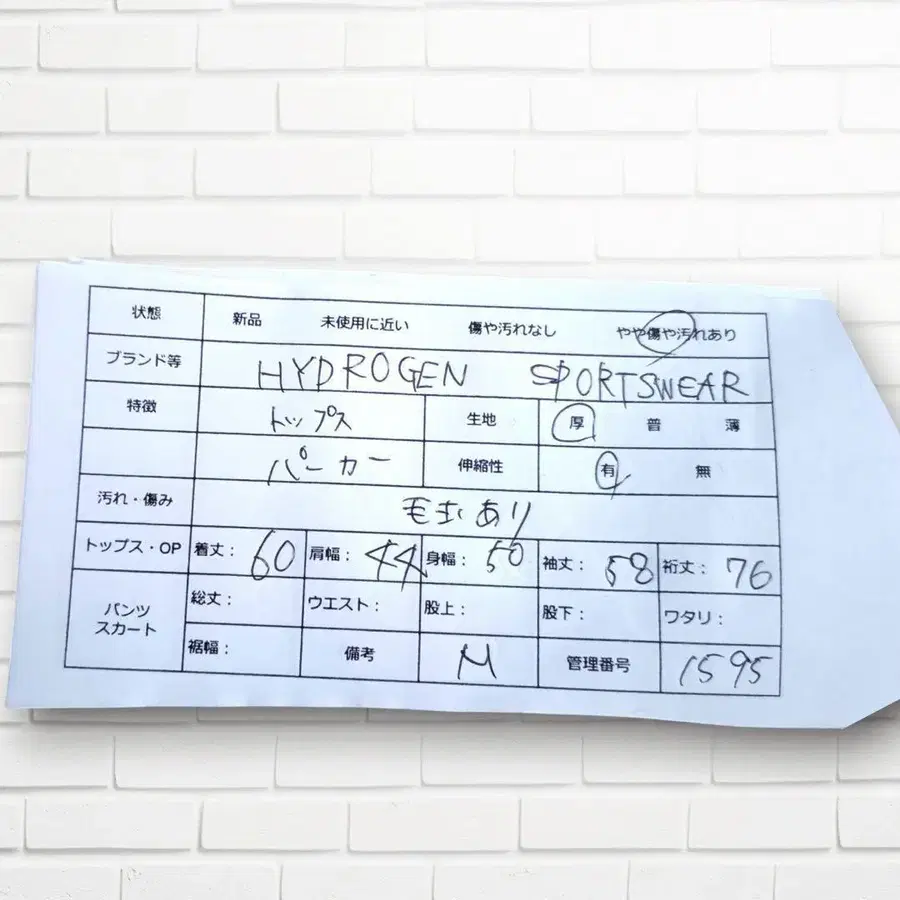 状態 新品 未使用に近い 傷や汚れなし やや傷や汚れあり
ブランド等 HYDROGEN SPORTSWEAR
特徴 トップス 生地 厚 普 薄
パーカー 伸縮性 有 無
汚れ・傷み 毛玉あり
トップス・OP 着丈： 60 肩幅： 44 身幅： 50 袖丈： 58 裄丈： 76
パンツ スカート 総丈： ウエスト： 股上： 股下： ワタリ：
裾幅： 備考 M 管理番号 1595